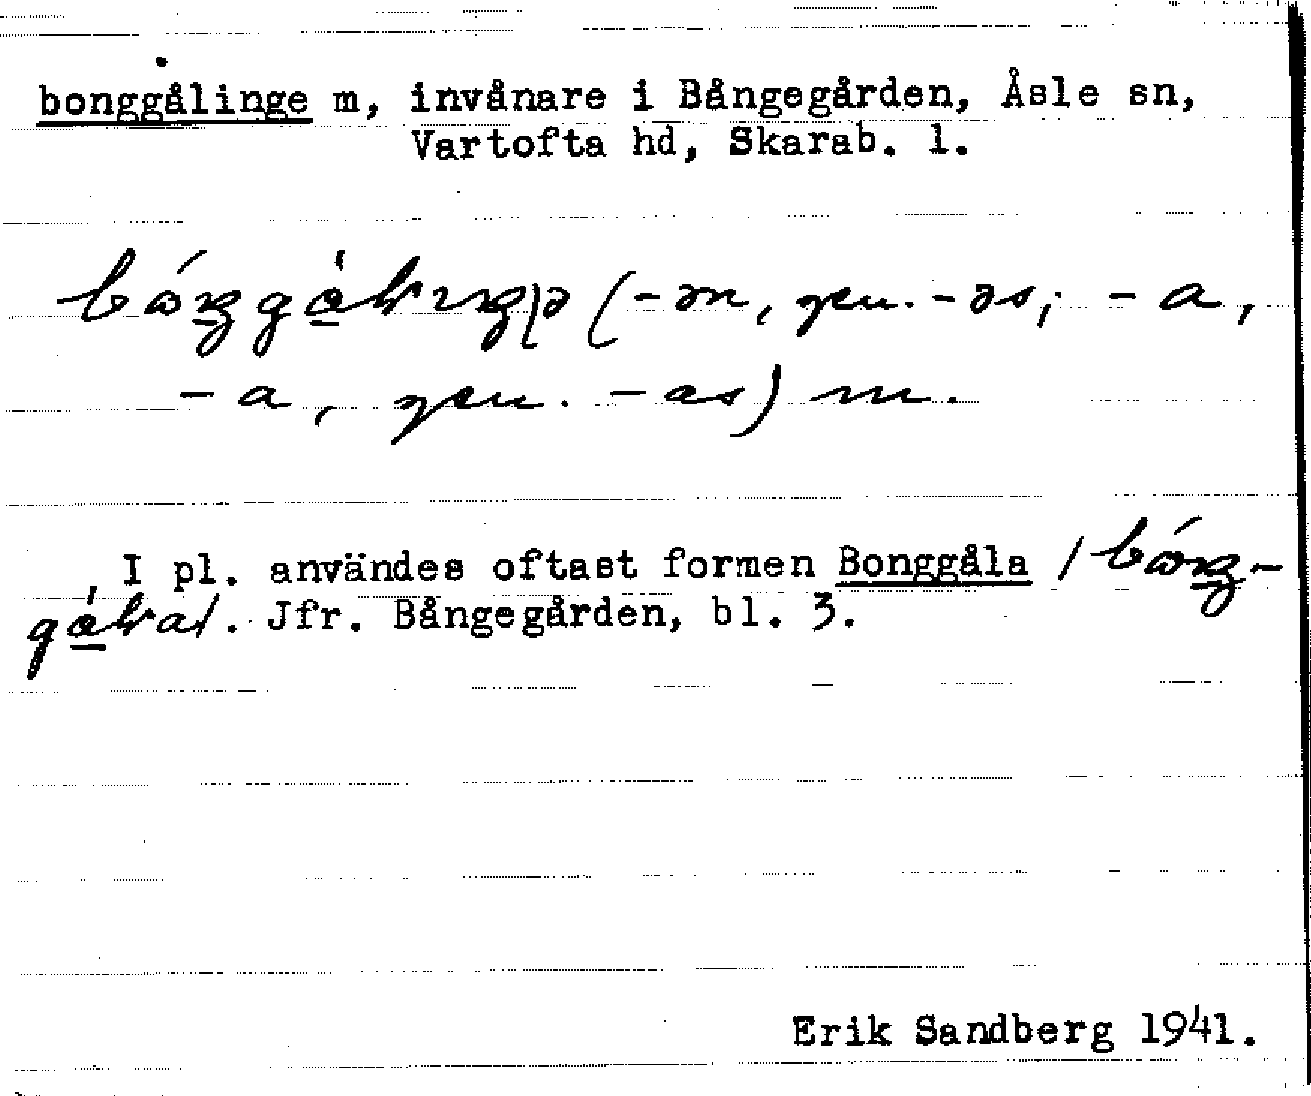 bonggålinge m, invånare i Bångegården, Åsle sn,
Vartofta hd, Skarab. l.
(-ən, gen. -əs; -a,
-a, gen. -as) m.
I pl. användes oftast formen Bonggåla /
Jfr. Bångegården, bl. 3.
Erik Sandberg 1941.